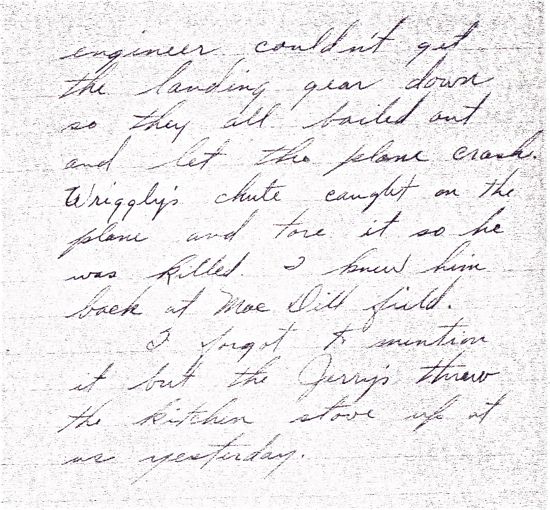 engineer couldn't get
the landing gear down
so they all bailed out
and let the plane crash.
Wriggly's chute caught on the
plane and tore it so he
was killed. I knew him
back at Mac Dill field.
I forgot to mention
it but the Jerry's threw
the kitchen stove up at
us yesterday.